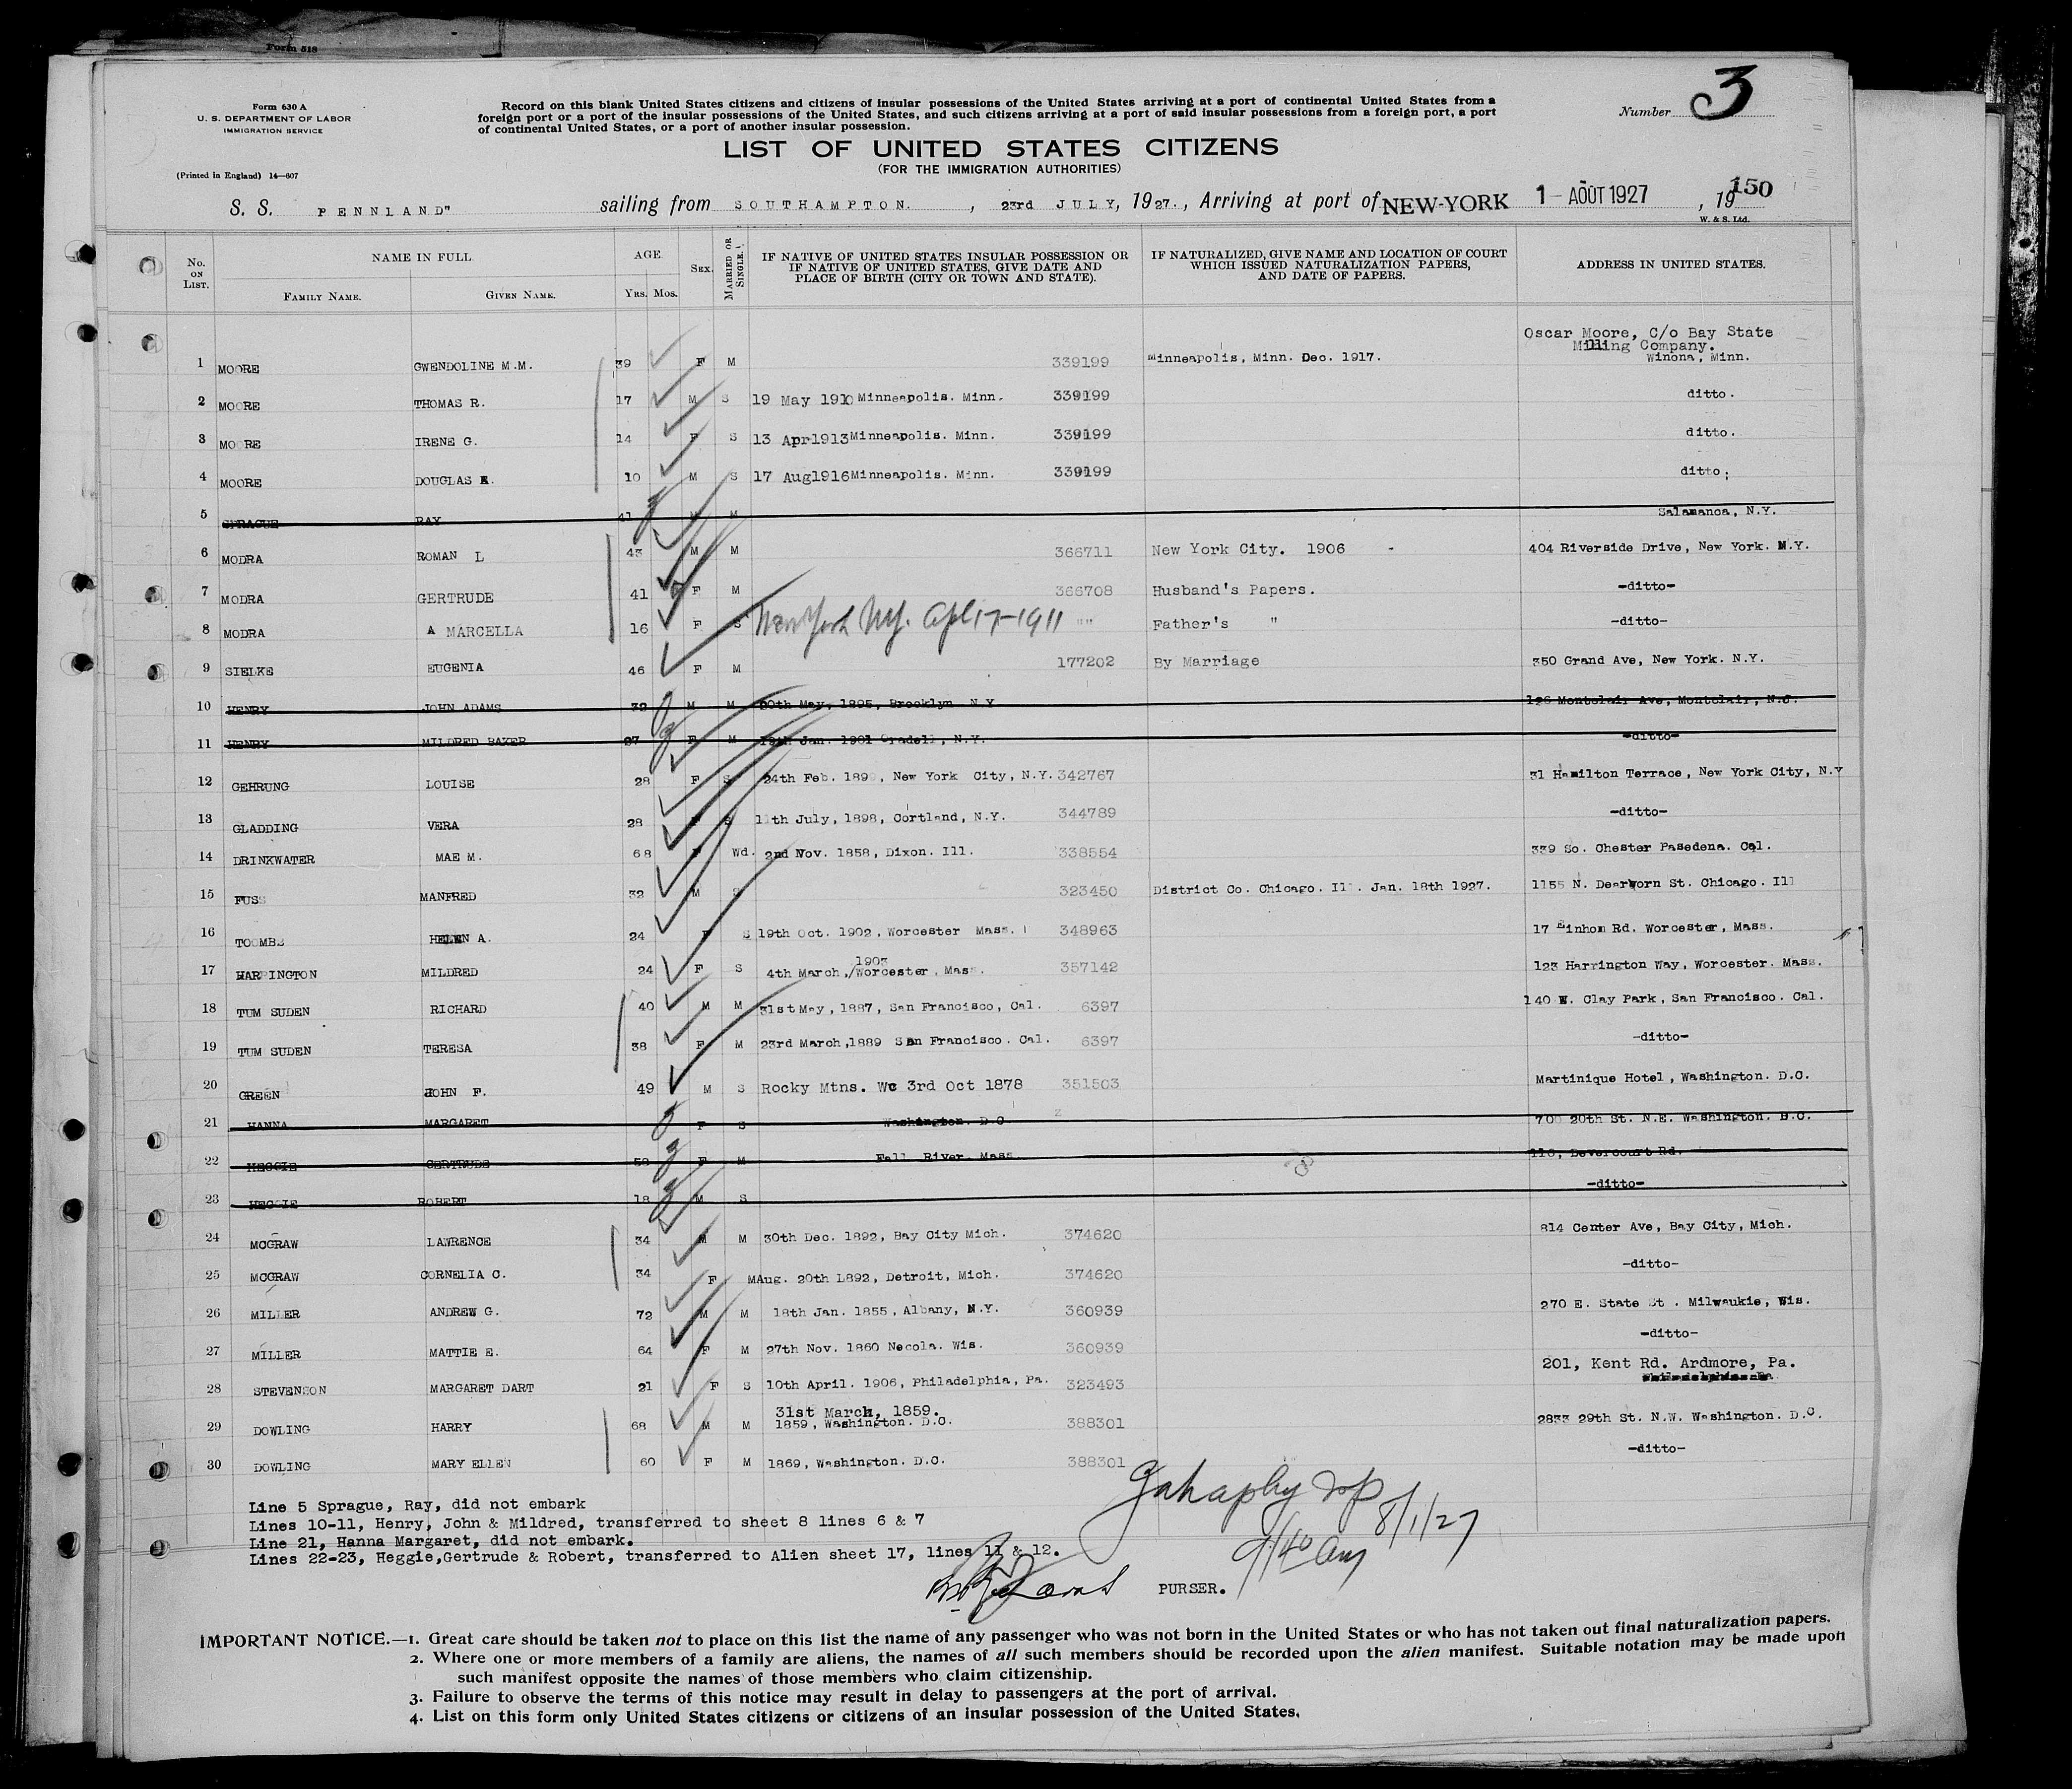 Form 518
Form 630 A
U. S. DEPARTMENT OF LABOR
IMMIGRATION SERVICE
(Printed in England) 14—607
Record on this blank United States citizens and citizens of insular possessions of the United States arriving at a port of continental United States from a
foreign port or a port of the insular possessions of the United States, and such citizens arriving at a port of said insular possessions from a foreign port, a port
of continental United States, or a port of another insular possession.
Number 3
LIST OF UNITED STATES CITIZENS
(FOR THE IMMIGRATION AUTHORITIES)
S. S. PENNLAND" sailing from SOUTHAMPTON. , 23rd JULY, 1927., Arriving at port of NEW-YORK 1- AOÛT 1927 , 19 150
W. & S. Ltd.
No. ON LIST. NAME IN FULL AGE SEX. MARRIED OR SINGLE. IF NATIVE OF UNITED STATES INSULAR POSSESSION OR IF NATIVE OF UNITED STATES, GIVE DATE AND PLACE OF BIRTH (CITY OR TOWN AND STATE). IF NATURALIZED, GIVE NAME AND LOCATION OF COURT WHICH ISSUED NATURALIZATION PAPERS, AND DATE OF PAPERS. ADDRESS IN UNITED STATES.
FAMILY NAME. GIVEN NAME. YRS. MOS.
Oscar Moore, C/o Bay State
Milling Company.
1 MOORE GWENDOLINE M.M. 39 F M 339199 Minneapolis, Minn. Dec. 1917. Winona, Minn.
2 MOORE THOMAS R. 17 M S 19 May 1910 Minneapolis. Minn. 339199 ditto.
3 MOORE IRENE G. 14 F S 13 Apr1913 Minneapolis. Minn. 339199 ditto.
4 MOORE DOUGLAS 10 M S 17 Aug1916 Minneapolis. Minn. 339199 ditto;
5 SPRAGUE RAY 41 M M Salamanca, N.Y.
6 MODRA ROMAN L 43 M M 366711 New York City. 1906 - 404 Riverside Drive, New York. N.Y.
7 MODRA GERTRUDE 41 F M 366708 Husband's Papers. -ditto-
8 MODRA A MARCELLA 16 F S New York N.Y. Apl 17-1911 "" Father's " -ditto-
9 SIELKE EUGENIA 46 F M 177202 By Marriage 350 Grand Ave, New York. N.Y.
10 HENRY JOHN ADAMS 32 M M 20th May, 1895, Brooklyn N.Y 126 Montclair Ave, Montclair, N.J.
11 HENRY MILDRED BAKER 27 F M Jan. 1901 Oradell, N.Y. -ditto-
12 GEHRUNG LOUISE 28 F S 24th Feb. 1899, New York City, N.Y. 342767 31 Hamilton Terrace, New York City, N.Y
13 GLADDING VERA 28 F S 11th July, 1898, Cortland, N.Y. 344789 -ditto-
14 DRINKWATER MAE M. 68 F Wd. 2nd Nov. 1858, Dixon. Ill. 338554 339 So. Chester Pasedena. Cal.
15 FUSS MANFRED 32 M S 323450 District Co. Chicago. Ill. Jan. 18th 1927. 1155 N. Dearborn St. Chicago. Ill
16 TOOMBS HELEN A. 24 F S 19th Oct. 1902, Worcester Mass. 348963 17 Einhom Rd. Worcester, Mass.
1903
17 HARRINGTON MILDRED 24 F S 4th March,/Worcester, Mass. 357142 123 Harrington Way, Worcester. Mass.
18 TUM SUDEN RICHARD 40 M M 31st May, 1887, San Francisco, Cal. 6397 140 W. Clay Park, San Francisco. Cal.
19 TUM SUDEN TERESA 38 F M 23rd March,1889 San Francisco. Cal. 6397 -ditto-
20 GREEN JOHN F. 49 M S Rocky Mtns. Wc 3rd Oct 1878 351503 Martinique Hotel, Washington. D.C.
21 HANNA MARGARET F S Washington. D.C 700 20th St. N.E. Washington. D.C.
22 HEGGIE GERTRUDE 58 F M Fall River. Mass. 116, Devercourt Rd.
23 HEGGIE ROBERT 18 M S -ditto-
24 MCGRAW LAWRENCE 34 M M 30th Dec. 1892, Bay City Mich. 374620 814 Center Ave, Bay City, Mich.
25 MCGRAW CORNELIA C. 34 F M Aug. 20th 1892, Detroit, Mich. 374620 -ditto-
26 MILLER ANDREW G. 72 M M 18th Jan. 1855, Albany, N.Y. 360939 270 E. State St. Milwaukie, Wis.
27 MILLER MATTIE E. 64 F M 27th Nov. 1860 Necola. Wis. 360939 -ditto-
28 STEVENSON MARGARET DART 21 F S 10th April. 1906, Philadelphia, Pa. 323493 201, Kent Rd. Ardmore, Pa.
Philadelphia Pa
31st March, 1859.
29 DOWLING HARRY 68 M M 1859, Washington. D.C. 388301 2833 29th St. N.W. Washington. D.C.
30 DOWLING MARY ELLEN 60 F M 1869, Washington. D.C. 388301 -ditto-
Line 5 Sprague, Ray, did not embark
Lines 10-11, Henry, John & Mildred, transferred to sheet 8 lines 6 & 7
Line 21, Hanna Margaret, did not embark.
Lines 22-23, Heggie,Gertrude & Robert, transferred to Alien sheet 17, lines 11 & 12.
8/1/27
9/40 am
PURSER.
IMPORTANT NOTICE.—1. Great care should be taken not to place on this list the name of any passenger who was not born in the United States or who has not taken out final naturalization papers.
2. Where one or more members of a family are aliens, the names of all such members should be recorded upon the alien manifest. Suitable notation may be made upon
such manifest opposite the names of those members who claim citizenship.
3. Failure to observe the terms of this notice may result in delay to passengers at the port of arrival.
4. List on this form only United States citizens or citizens of an insular possession of the United States.